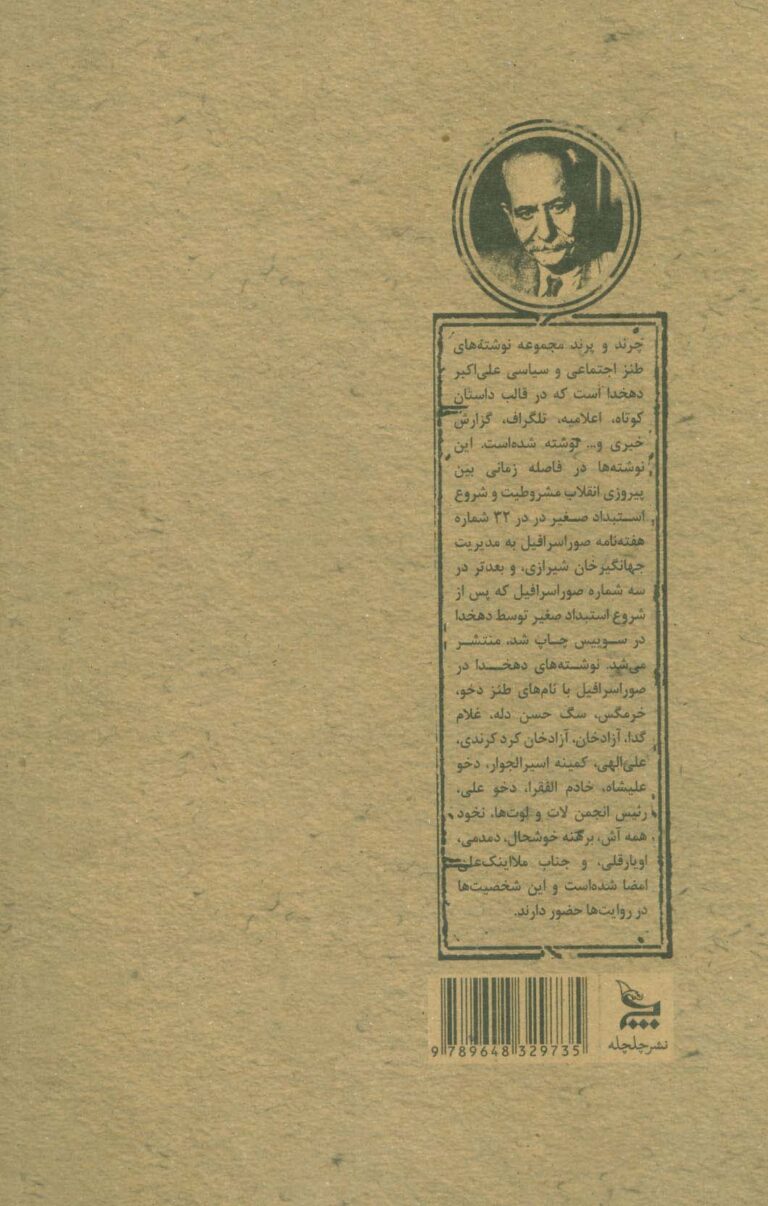 چرند و پرند مجموعه نوشته‌های
طنز اجتماعی و سیاسی علی‌اکبر
دهخدا است که در قالب داستان
کوتاه، اعلامیه، تلگراف، گزارش
خبری و... نوشته شده‌است. این
نوشته‌ها در فاصله زمانی بین
پیروزی انقلاب مشروطیت و شروع
استبداد صغیر در در ۳۲ شماره
هفته‌نامه صوراسرافیل به مدیریت
جهانگیرخان شیرازی، و بعدتر در
سه شماره صوراسرافیل که پس از
شروع استبداد صغیر توسط دهخدا
در سوییس چاپ شد، منتشر
می‌شد. نوشته‌های دهخدا در
صوراسرافیل با نام‌های طنز دخو،
خرمگس، سگ حسن دله، غلام
گدا، آزادخان، آزادخان کرد کرندی،
علی‌الهی، کمینه اسیرالجوار، دخو
علیشاه، خادم الفقرا، دخو علی،
رئیس انجمن لات و لوت‌ها، نخود
همه آش، برهنه خوشحال، دمدمی،
اویارقلی، و جناب ملااینک‌علی
امضا شده‌است و این شخصیت‌ها
در روایت‌ها حضور دارند.
9 789648 329735
نشرچلچله